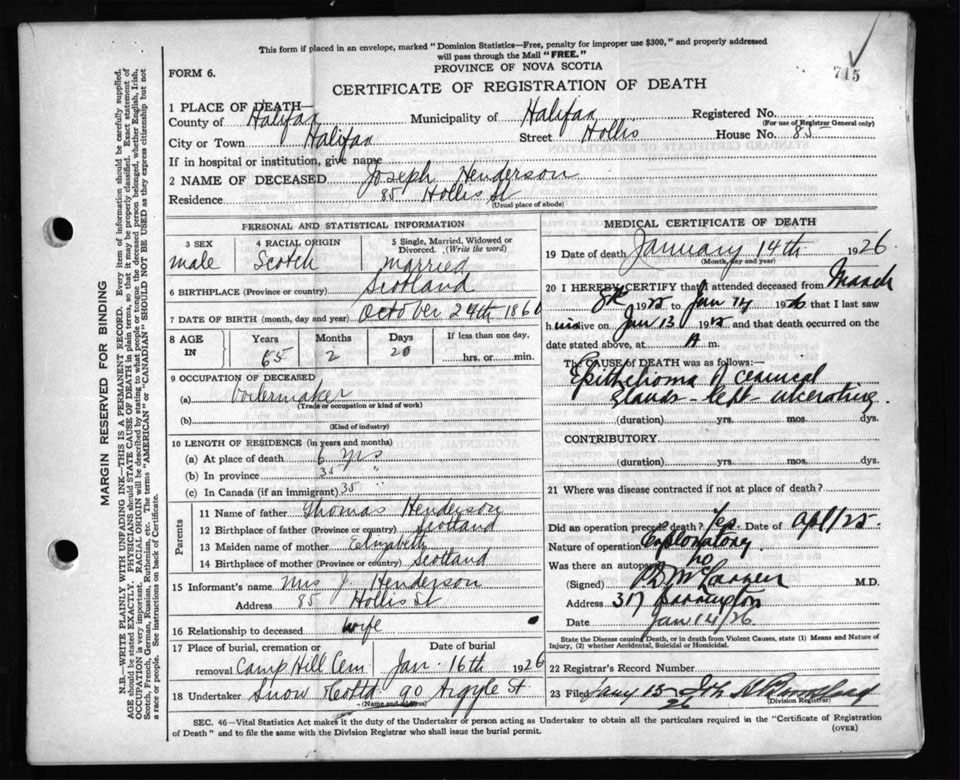 This form if placed in an envelope, marked "Dominion Statistics—Free, penalty for improper use $300," and properly addressed
will pass through the Mail "FREE."
715
FORM 6.
PROVINCE OF NOVA SCOTIA
CERTIFICATE OF REGISTRATION OF DEATH
1 PLACE OF DEATH—
County of Halifax Municipality of Halifax Registered No.
(For use of Registrar General only)
City or Town Halifax Street Hollis House No. 85
If in hospital or institution, give name
2 NAME OF DECEASED Joseph Henderson
Residence 85 Hollis St
(Usual place of abode)
PERSONAL AND STATISTICAL INFORMATION
3 SEX 4 RACIAL ORIGIN 5 Single, Married, Widowed or Divorced. (Write the word)
male Scotch married
6 BIRTHPLACE (Province or country) Scotland
7 DATE OF BIRTH (month, day and year) October 24th 1860
8 AGE IN Years Months Days If less than one day,
65 2 20 hrs. or min.
9 OCCUPATION OF DECEASED
(a) Boilermaker
(Trade or occupation or kind of work)
(b)
(Kind of industry)
10 LENGTH OF RESIDENCE (in years and months)
(a) At place of death 6 yrs
(b) In province 35 "
(c) In Canada (if an immigrant) 35 "
Parents
11 Name of father Thomas Henderson
12 Birthplace of father (Province or country) Scotland
13 Maiden name of mother Elizabeth
14 Birthplace of mother (Province or country) Scotland
15 Informant's name Mrs J. Henderson
Address 85 Hollis St
16 Relationship to deceased wife
17 Place of burial, cremation or removal Camp Hill Cem Date of burial Jan. 16th 1926
18 Undertaker Snow & Co Ltd 90 Argyle St
(Name and address)
MEDICAL CERTIFICATE OF DEATH
19 Date of death January 14th 1926
(Month, day and year)
20 I HEREBY CERTIFY that I attended deceased from March
1925 to Jan 14 1926 that I last saw
him alive on Jan 13 19 and that death occurred on the
date stated above, at m.
The CAUSE OF DEATH was as follows:
Epithelioma of cervical
glands - left - ulcerating.
(duration) yrs. mos. dys.
CONTRIBUTORY
(duration) yrs. mos. dys.
21 Where was disease contracted if not at place of death?
Did an operation precede death? Yes Date of Apl/25.
Nature of operation Exploratory.
Was there an autopsy? no
(Signed) M.D.
Address 317 Barrington
Date Jan 14/26
State the Disease causing Death, or in death from Violent Causes, state (1) Means and Nature of
Injury, (2) whether Accidental, Suicidal or Homicidal.
22 Registrar's Record Number
23 Filed Jany 15 26
(Division Registrar)
SEC. 46—Vital Statistics Act makes it the duty of the Undertaker or person acting as Undertaker to obtain all the particulars required in the "Certificate of Registration
of Death" and to file the same with the Division Registrar who shall issue the burial permit.
(OVER)
MARGIN RESERVED FOR BINDING
N.B.—WRITE PLAINLY WITH UNFADING INK—THIS IS A PERMANENT RECORD. Every item of information should be carefully supplied.
AGE should be stated EXACTLY. PHYSICIANS should STATE CAUSE OF DEATH in plain terms, so that it may be properly classified. Exact statement of
OCCUPATION is very important. RACIAL ORIGIN will be described by stating to what people or tongue the deceased person belonged, whether English, Irish,
Scotch, French, German, Russian, Ruthenian, etc. The terms "AMERICAN" or "CANADIAN" SHOULD NOT BE USED as they express citizenship but not
a race or people. See instructions on back of Certificate.